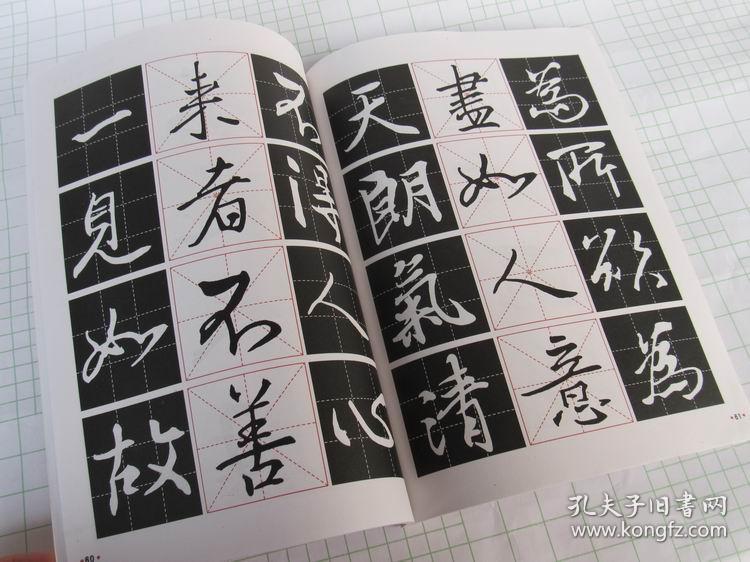 不得人心
来者不善
一見如故
60
為所欲為
盡如人意
天朗氣清
61
孔夫子旧书网
www.kongfz.com